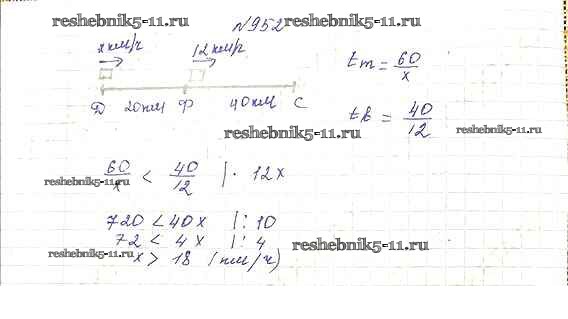 reshebnik5-11.ru
N952
reshebnik5-11.ru
x км/ч 12 км/ч
tт = 60/x
Д 20км Ф 40км С
tв = 40/12
reshebnik5-11.ru
reshebnik5-11.ru
60/x < 40/12 | · 12x
reshebnik5-11.ru
720 < 40x | : 10
72 < 4x | : 4
reshebnik5-11.ru
x > 18 (км/ч)
reshebnik5-11.ru